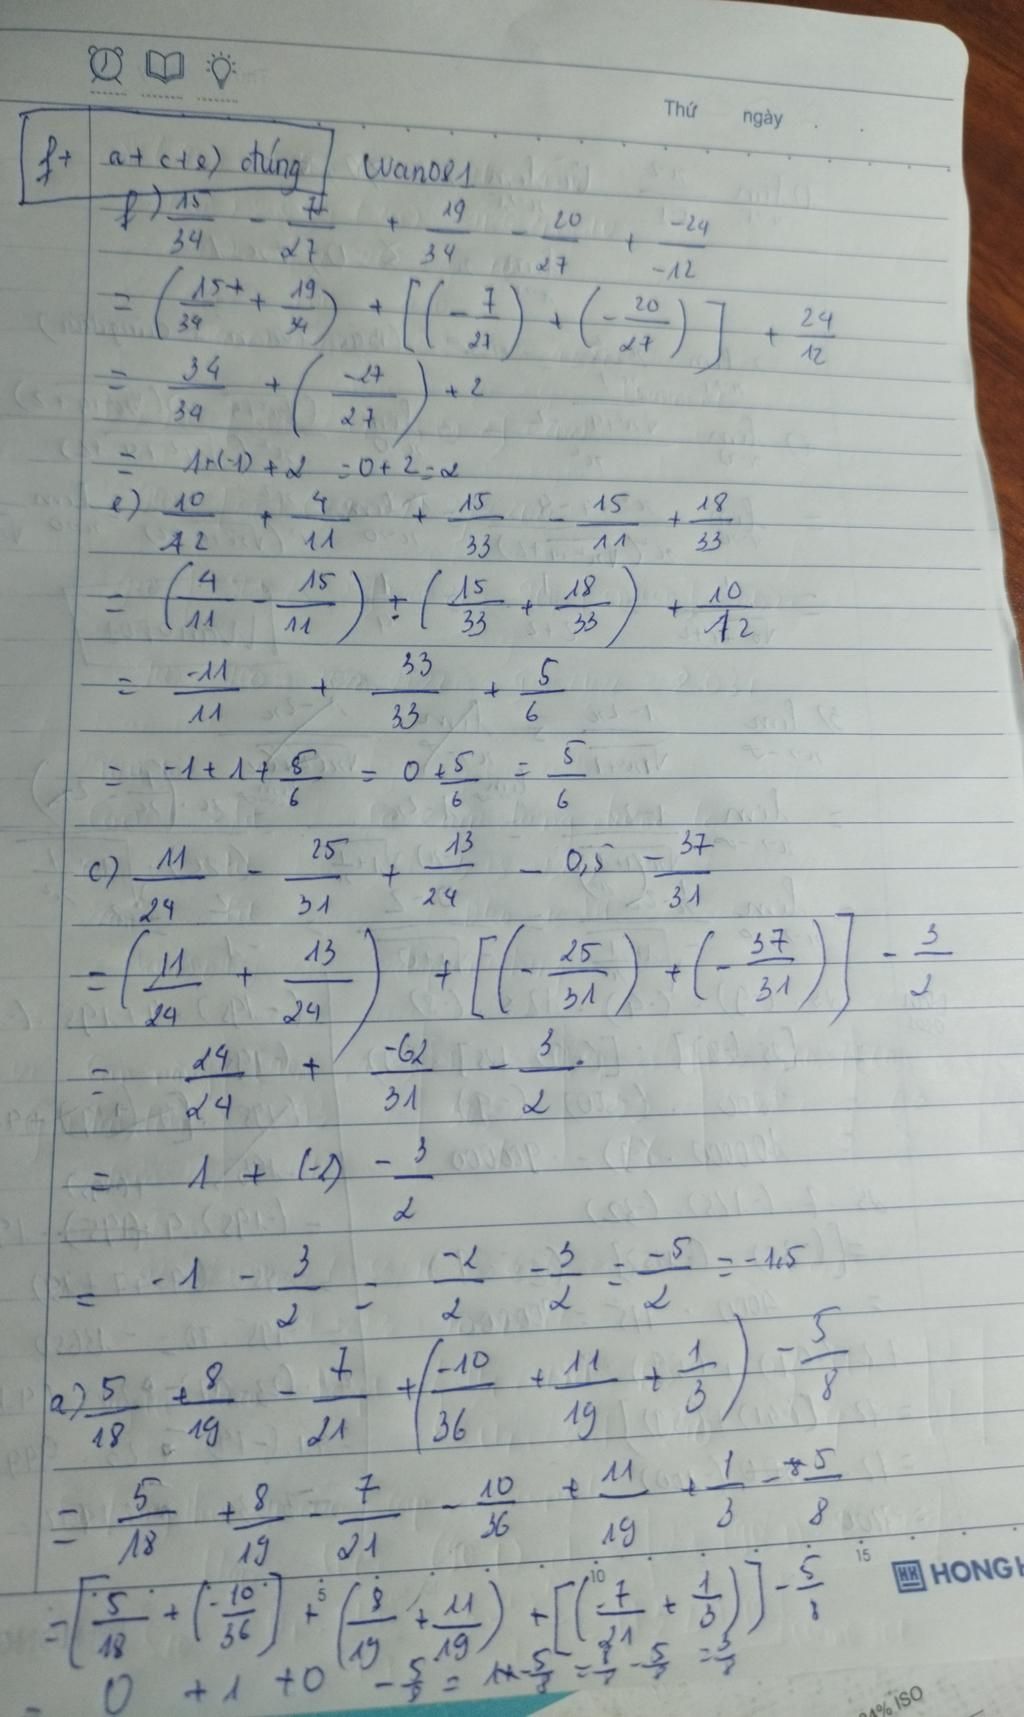 Thứ ngày . .
f + a + c + e) đúng Wano81
f) 15/34 - 7/27 + 19/34 - 20/27 + -24/-12
= (15/34 + 19/34) + [(-7/27) + (-20/27)] + 24/12
= 34/34 + (-27/27) + 2
= 1+(-1) + 2 = 0 + 2 = 2
e) 10/12 + 4/11 + 15/33 - 15/11 + 18/33
= (4/11 - 15/11) + (15/33 + 18/33) + 10/12
= -11/11 + 33/33 + 5/6
= -1 + 1 + 5/6 = 0 + 5/6 = 5/6
c) 11/24 - 25/31 + 13/24 - 0,5 - 37/31
= (11/24 + 13/24) + [(-25/31) + (-37/31)] - 3/2
= 24/24 + -62/31 - 3/2
= 1 + (-2) - 3/2
= -1 - 3/2 = -2/2 - 3/2 = -5/2 = -1,5
a) 5/18 + 8/19 - 7/21 + (-10/36 + 11/19 + 1/3) - 5/8
= 5/18 + 8/19 - 7/21 - 10/36 + 11/19 + 1/3 - 5/8
= [5/18 + (-10/36)] + (8/19 + 11/19) + [(-7/21 + 1/3)] - 5/8
= 0 + 1 + 0 - 5/8 = 1 - 5/8 = 8/8 - 5/8 = 3/8
5 10 15
HONG H
% ISO